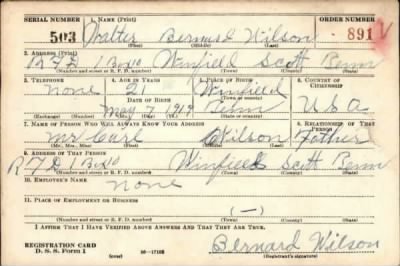 SERIAL NUMBER 1. NAME (Print) ORDER NUMBER
503 Walter Bernard Wilson 891
(First) (Middle) (Last)
2. ADDRESS (Print)
R.F.D. 1 Box 10 Winfield Scott Tenn
(Number and street or R. F. D. number) (Town) (County) (State)
3. TELEPHONE 4. AGE IN YEARS 5. PLACE OF BIRTH 6. COUNTRY OF CITIZENSHIP
None 21 Winfield
(Town or county)
DATE OF BIRTH
May 7 1919 Tenn U.S.A
(Exchange) (Number) (Mo.) (Day) (Yr.) (State or country)
7. NAME OF PERSON WHO WILL ALWAYS KNOW YOUR ADDRESS 8. RELATIONSHIP OF THAT PERSON
Mr Wilson Father
(Mr., Mrs., Miss) (First) (Middle) (Last)
9. ADDRESS OF THAT PERSON
R F D 1 Box 10 Winfield Scott Tenn
(Number and street or R. F. D. number) (Town) (County) (State)
10. EMPLOYER'S NAME
None
11. PLACE OF EMPLOYMENT OR BUSINESS
(—)
(Number and street or R. F. D. number) (Town) (County) (State)
I AFFIRM THAT I HAVE VERIFIED ABOVE ANSWERS AND THAT THEY ARE TRUE.
REGISTRATION CARD
D. S. S. Form 1 (over) Bernard Wilson
(Registrant's signature)